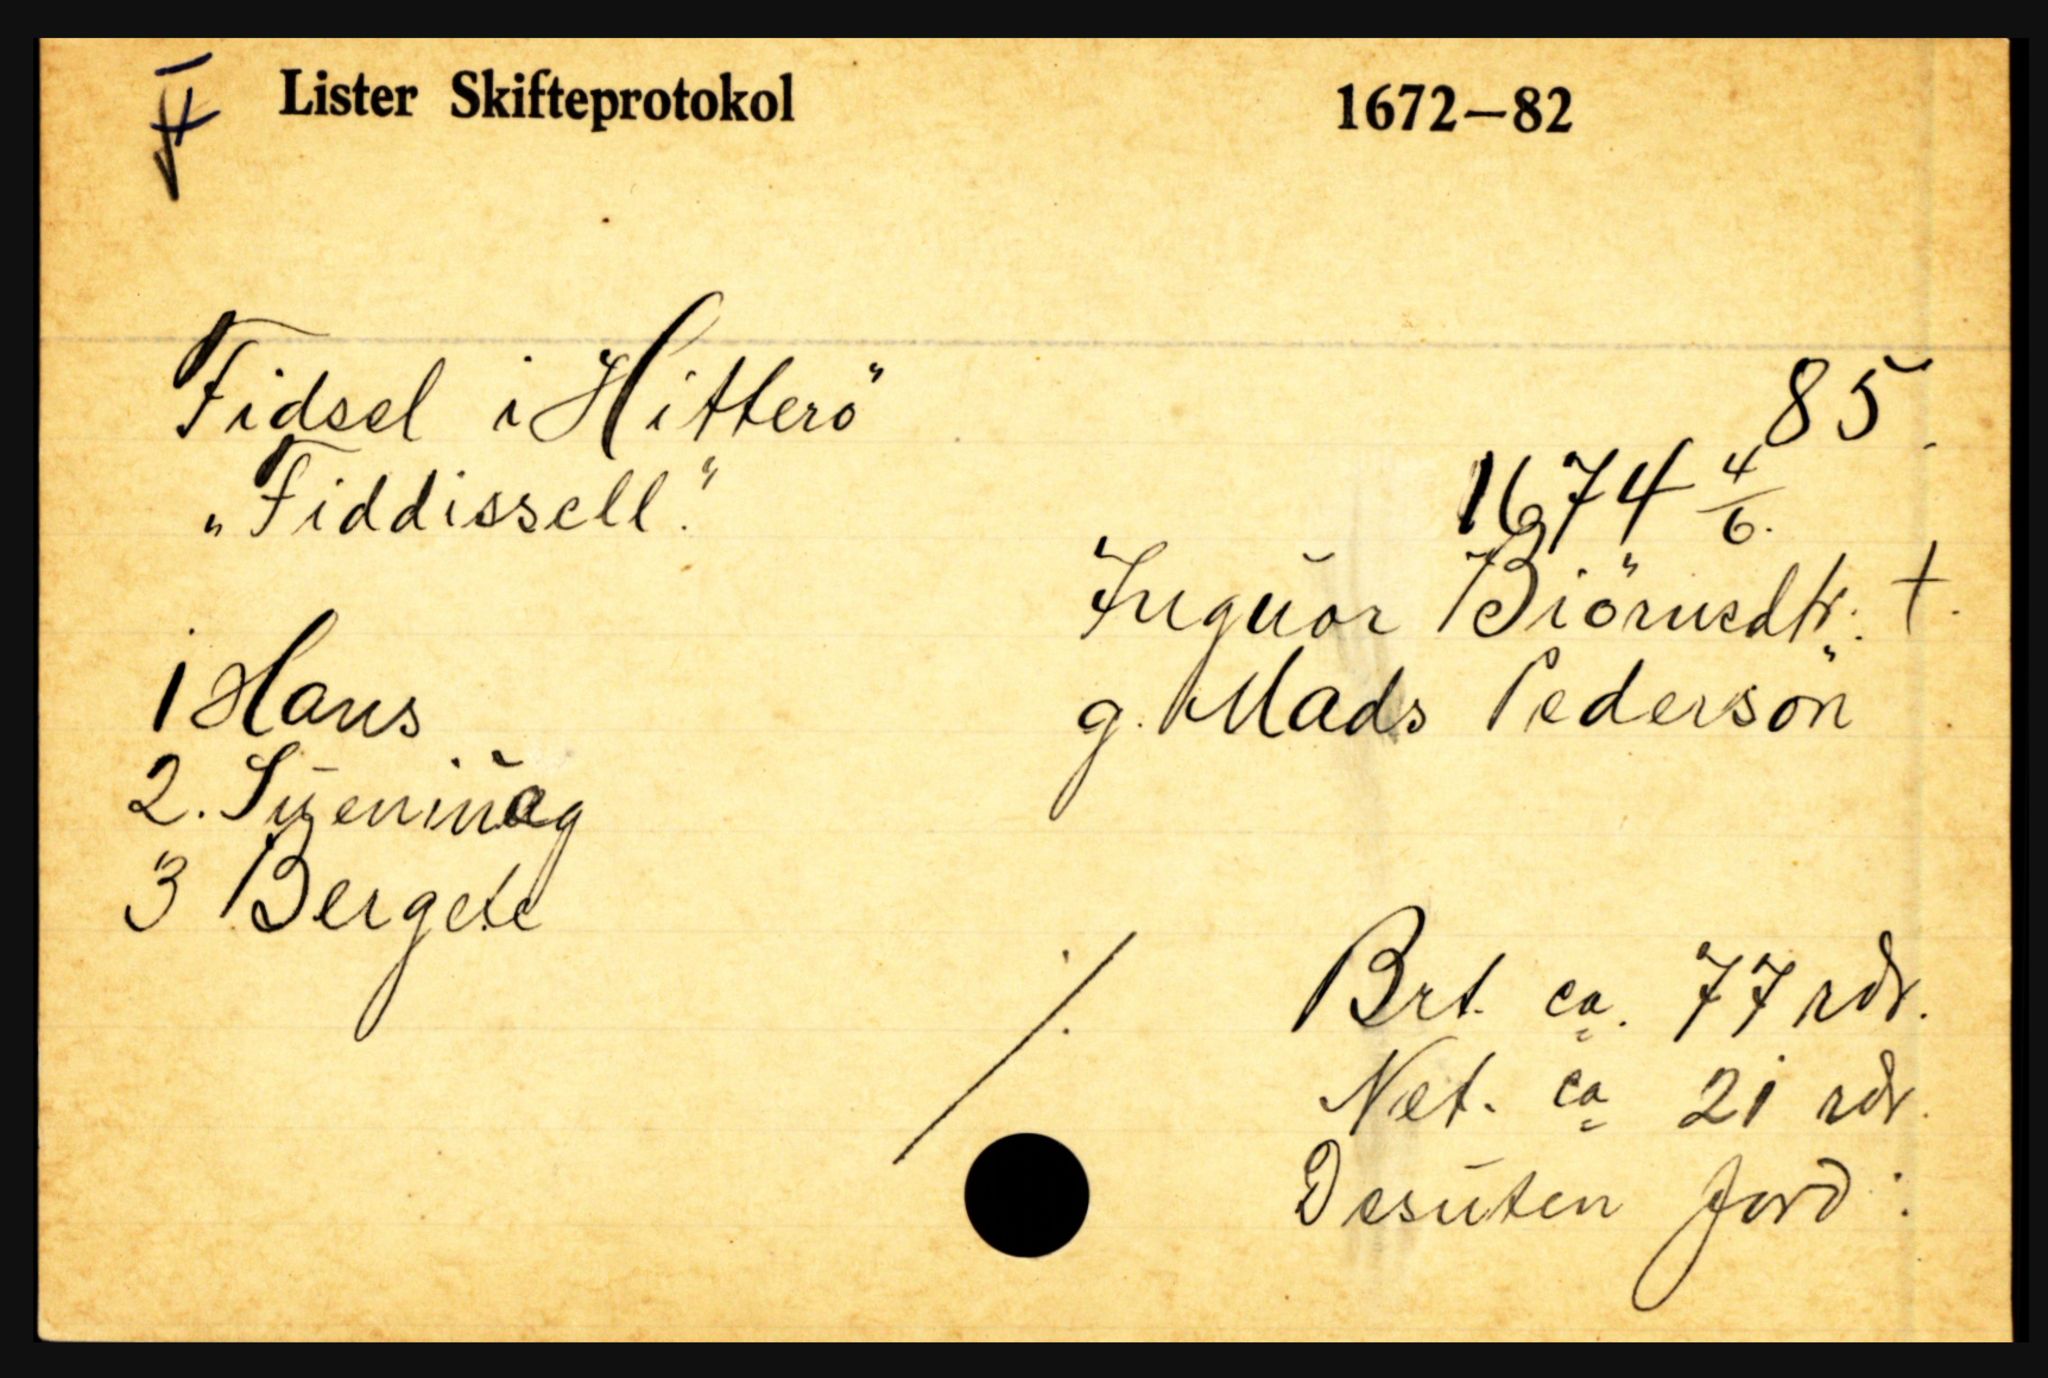 F Lister Skifteprotokol 1672–82
Fidsel i Hitterö
85.
„Fiddissell."
1674 4/6.
Inguor Biörnsdtr. †.
1 Hans
g. Mads Pedersön
2.
3 Bergete
Brt. ca. 77 rdr.
Net. ca 21 rdr.
Desuten Jord: